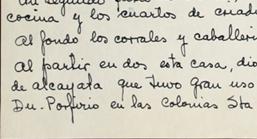 un segundo
cocina y los cuartos de criad
Al fondo los corrales y caballeri
Al partir en dos esta casa, dio
de alcayata que tuvo gran uso
Dn. Porfirio en las colonias Sta